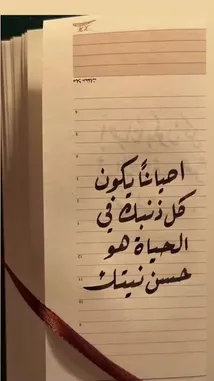 احياناً يكون
كل ذنبك في
الحياة هو
حسن نيتك